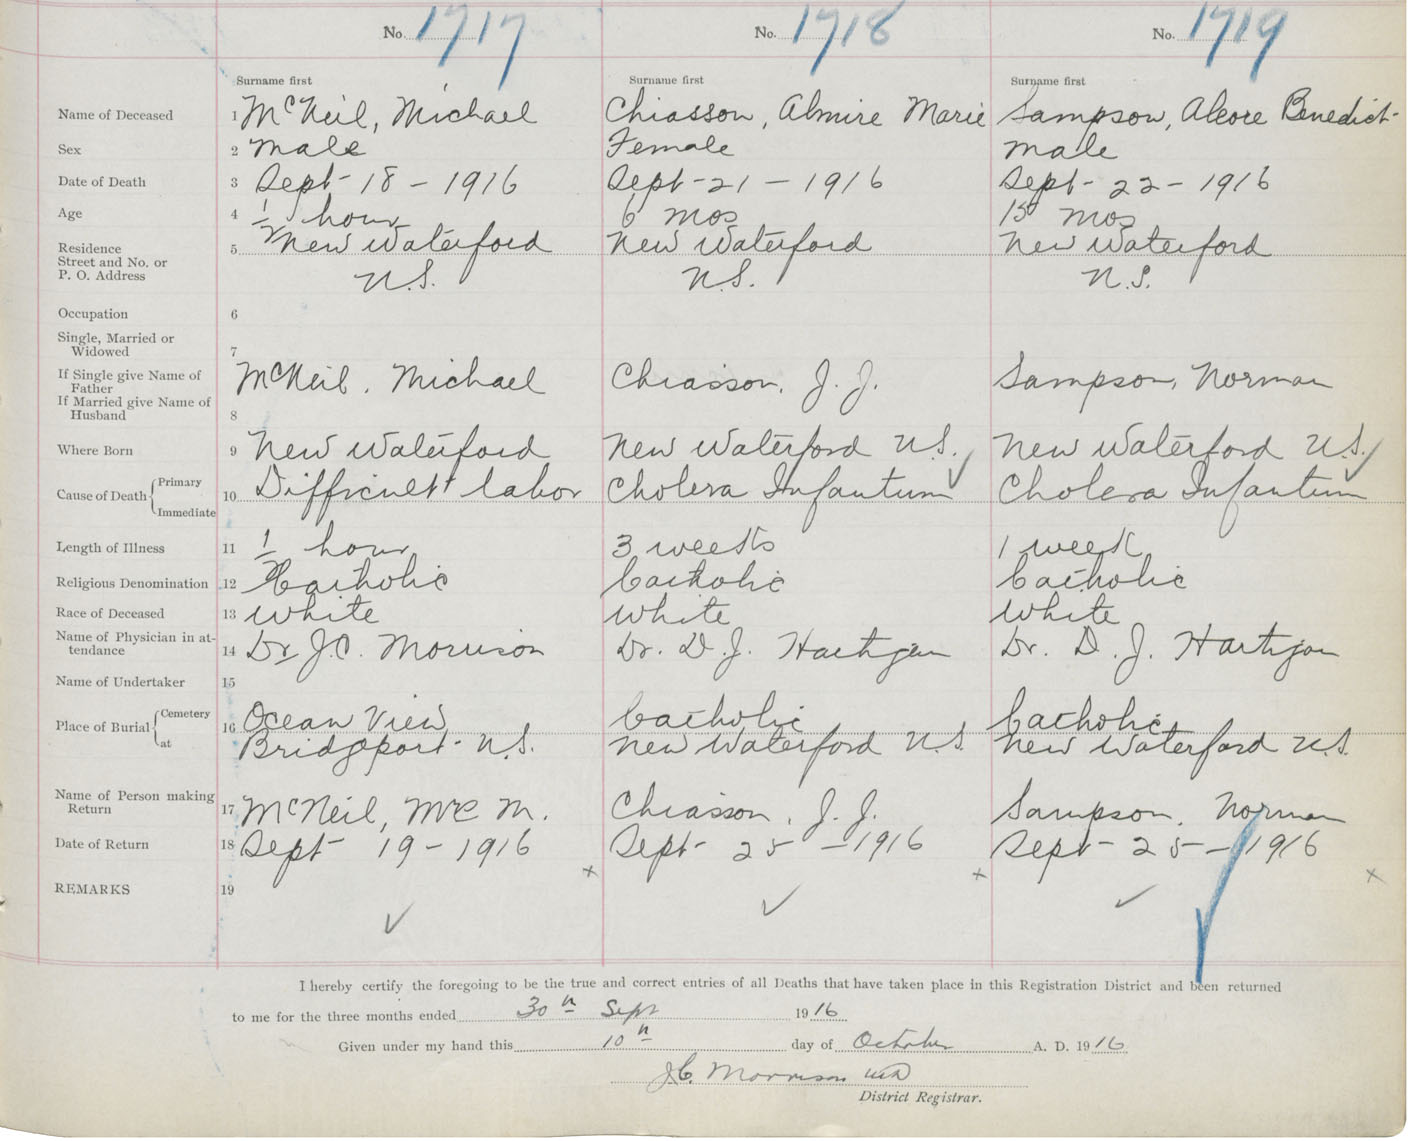 No. 1717 No. 1718 No. 1719
Surname first Surname first Surname first
Name of Deceased 1 McNeil, Michael Chiasson, Almire Marie Sampson, Alcore Benedict
Sex 2 Male Female Male
Date of Death 3 Sept - 18 - 1916 Sept - 21 - 1916 Sept - 22 - 1916
Age 4 1/2 hour 6 mos 15 mos
Residence 5 New Waterford New Waterford New Waterford
Street and No. or
P. O. Address N.S. N.S. N.S.
Occupation 6
Single, Married or
Widowed 7
If Single give Name of McNeil, Michael Chiasson, J. J. Sampson, Norman
Father
If Married give Name of
Husband 8
Where Born 9 New Waterford New Waterford N.S. New Waterford N.S.
Cause of Death { Primary
10 Difficult labor Cholera Infantum Cholera Infantum
Immediate
Length of Illness 11 1/2 hour 3 weeks 1 week
Religious Denomination 12 Catholic Catholic Catholic
Race of Deceased 13 White White White
Name of Physician in at-
tendance 14 Dr J.C. Morrison Dr. D. J. Hartigan Dr. D. J. Hartigan
Name of Undertaker 15
Place of Burial { Cemetery 16 Ocean View Catholic Catholic
at Bridgeport - N.S. New Waterford N.S. New Waterford N.S.
Name of Person making
Return 17 McNeil, Mrs M. Chiasson, J. J. Sampson, Norman
Date of Return 18 Sept 19 - 1916 Sept - 25 - 1916 Sept - 25 - 1916
REMARKS 19
I hereby certify the foregoing to be the true and correct entries of all Deaths that have taken place in this Registration District and been returned
to me for the three months ended 30th Sept 1916
Given under my hand this 10th day of October A. D. 1916
J.C. Morrison MD
District Registrar.